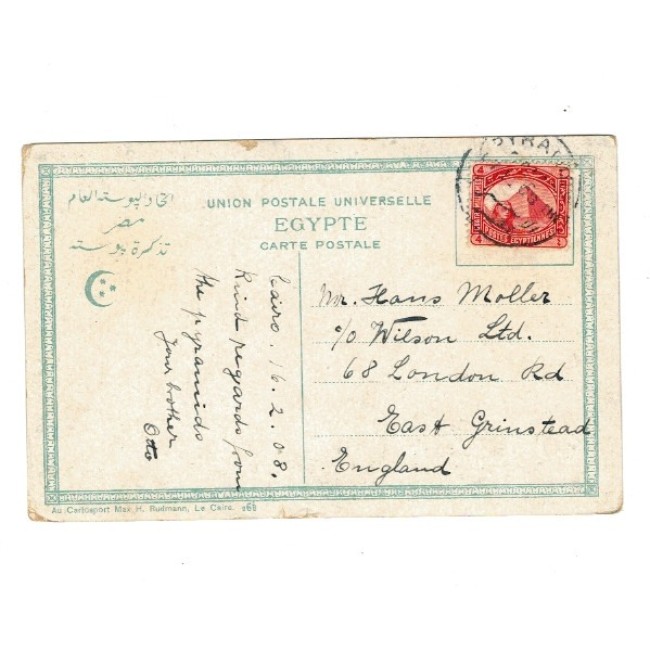 اتحاد البوستة العام
مصر
تذكرة بوستة
UNION POSTALE UNIVERSELLE
EGYPTE
CARTE POSTALE
PYRA
POSTES EGYPTIENNES
4
4
Cairo. 16. 2. 08.
Kind regards from
the pyramids
Your brother
Otto
Mr. Hans Moller
c/o Wilson Ltd.
68 London Rd
East Grinstead
England
Au Cartosport Max H. Rudmann, Le Caire. 268